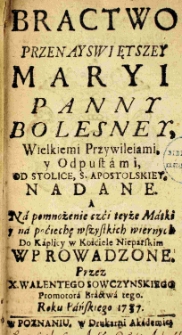 BRACTWO
PRZENAYSWIĘTSZEY
MARYI
PANNY
BOLESNEY,
Wielkiemi Przywileiami,
y Odpustámi,
OD STOLICE, S. APOSTOLSKIEY,
NADANE.
A
Ná pomnożenie czći teyże Mátki
y ná poćiechę wszystkich wiernych
Do Káplicy w Kośćiele Nieparskim
WPROWADZONE.
Przez
X. WALENTEGO SOWCZYNSKIEGO
Promotorá Bráctwá tego.
Roku Páńskiego 1737.
w POZNANIU, w Drukárni Akademiey